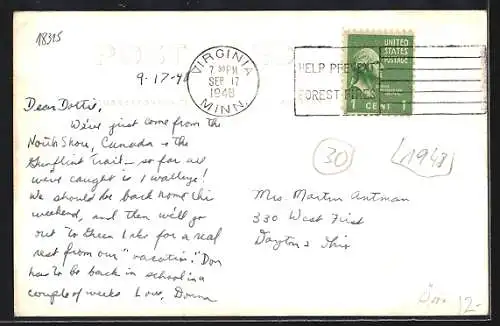 18315
POST CARD
VIRGINIA
7 30 PM
SEP 17
1948
MINN.
HELP PREVENT
FOREST FIRES
UNITED
STATES
POSTAGE
1 CENT 1
9-17-48
Dear Dottie,
We've just come from the
North Shore, Canada & the
Gunflint Trail — so far all
we've caught is 1 walleye!
We should be back home this
weekend, and then we'll go
out to Green Lake for a real
rest from our "vacation." Don
has to be back in school in a
couple of weeks Love, Donna
30
(1948)
Mrs Martin Antman
330 West First
Dayton
12-